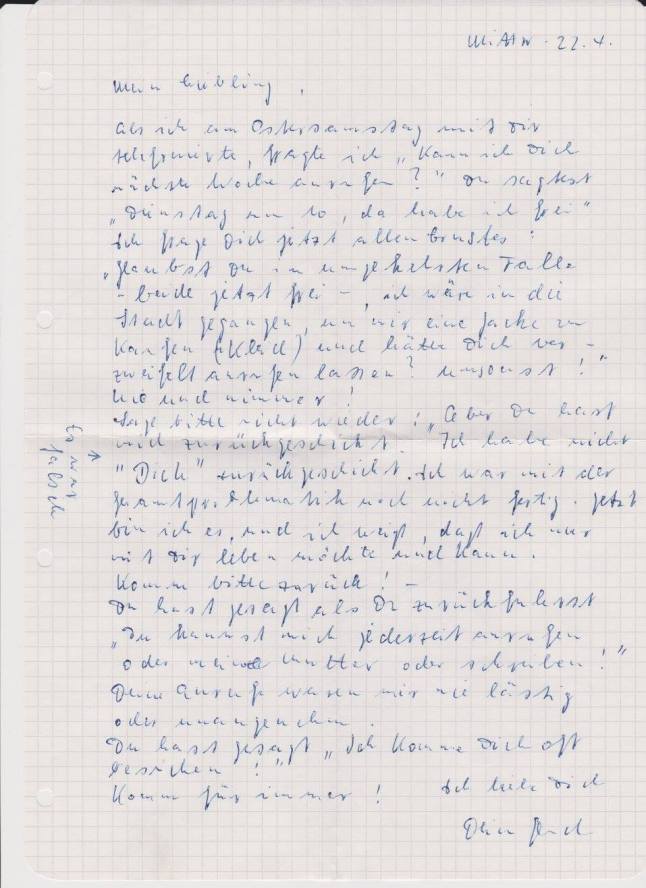 Mittw. 22.4.
Mein Liebling,
Als ich am Ostersamstag mit Dir
telefonierte, fragte ich „Kann ich Dich
nächste Woche anrufen?" Du sagtest
„Dienstag um 10, da habe ich frei"
Ich frage Dich jetzt allen Ernstes:
„Glaubst Du im umgekehrten Falle
- beide jetzt frei -, ich wäre in die
Stadt gegangen, um mir eine Jacke zu
kaufen (Kleid) und hätte Dich ver-
zweifelt anrufen lassen? umsonst!"
Nie und nimmer!
Sage bitte nicht wieder: „Aber Du hast
mich zurückgeschickt. Ich habe nicht
"Dich" zurückgeschickt. Ich war mit der
Gesamtproblematik noch nicht fertig. Jetzt
bin ich es, und ich weiß, daß ich nur
mit Dir leben möchte und kann.
Komm bitte zurück! -
Du hast gesagt als Du zurückfuhrst
„Du kannst mich jederzeit anrufen
oder meine Mutter oder schreiben!"
Deine Anrufe waren mir nie lästig
oder unangenehm.
Du hast gesagt „Ich komme Dich oft
besuchen!"
Komm für immer! Ich liebe Dich
Dein
Es war
falsch